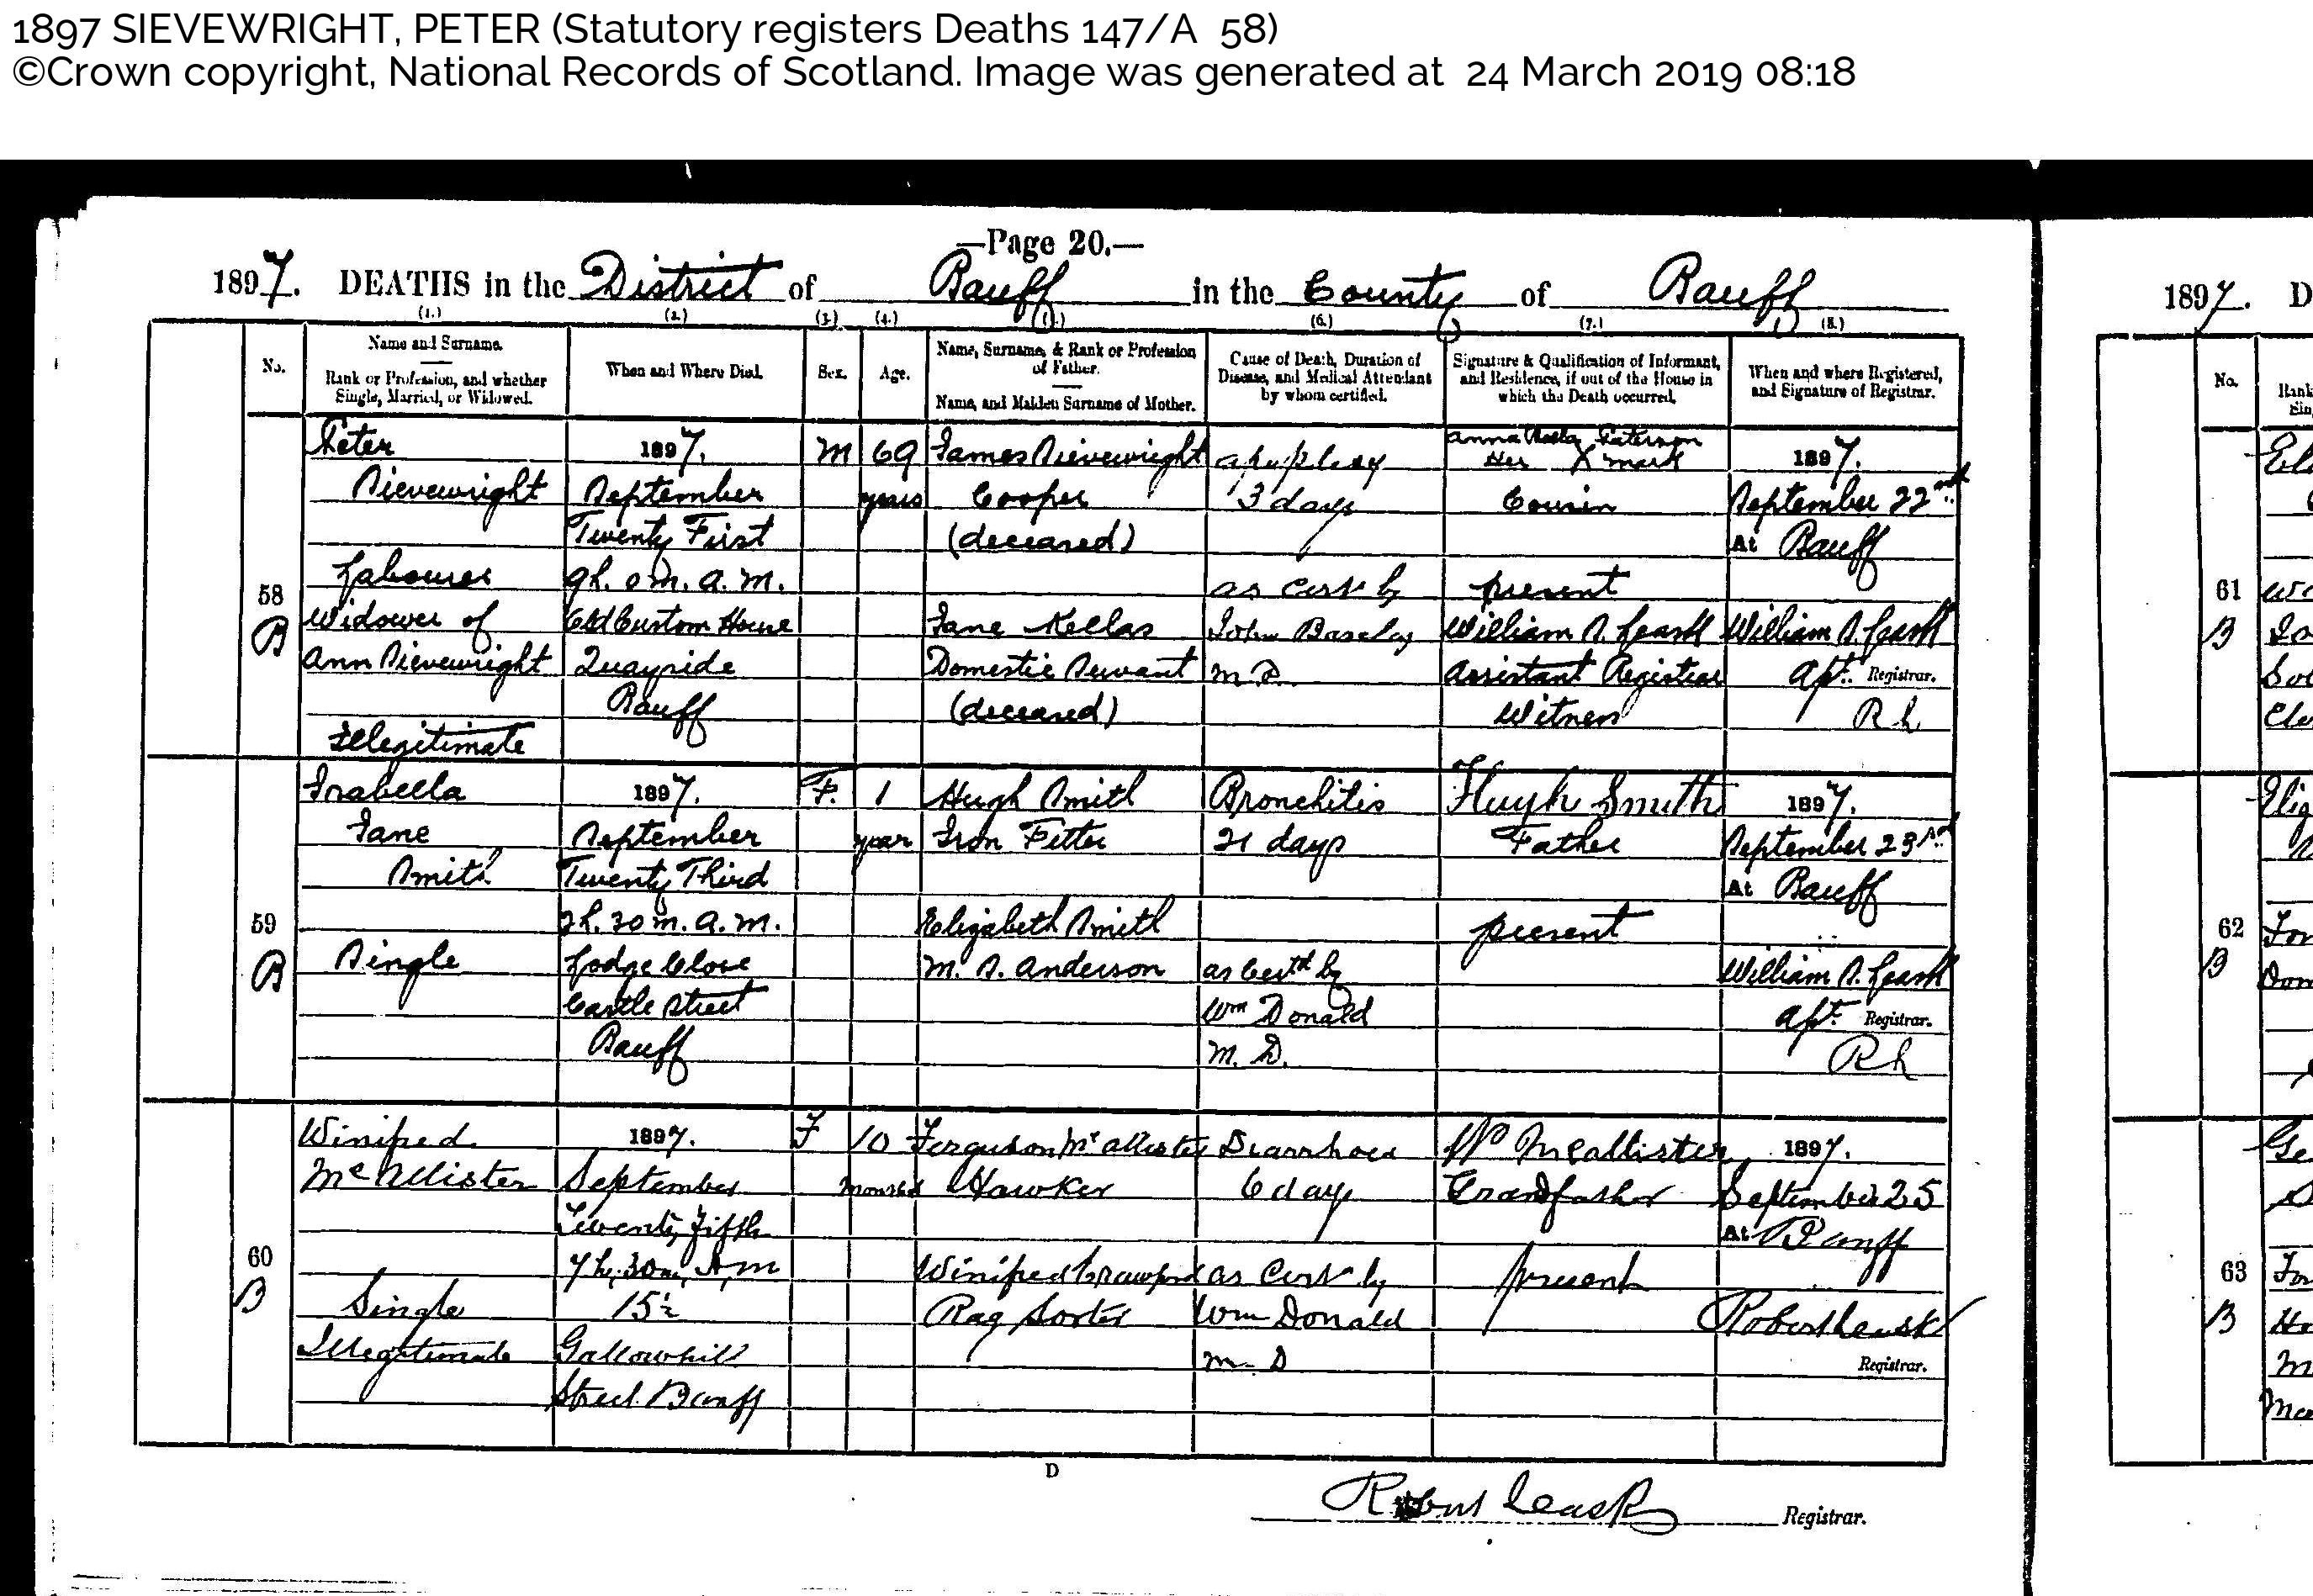 1897 SIEVEWRIGHT, PETER (Statutory registers Deaths 147/A 58)
©Crown copyright, National Records of Scotland. Image was generated at 24 March 2019 08:18
—Page 20.—
1897. DEATHS in the District of Banff in the County of Banff
(1.) (2.) (3.) (4.) (5.) (6.) (7.) (8.)
No.
Name and Surname.
Rank or Profession, and whether
Single, Married, or Widowed.
When and Where Died.
Sex.
Age.
Name, Surname, & Rank or Profession
of Father.
Name, and Maiden Surname of Mother.
Cause of Death, Duration of
Disease, and Medical Attendant
by whom certified.
Signature & Qualification of Informant,
and Residence, if out of the House in
which the Death occurred.
When and where Registered,
and Signature of Registrar.
58
B
Peter
Sievewright
Labourer
Widower of
Ann Sievewright
Illegitimate
1897.
September
Twenty First
9h. 0m. A.M.
Old Custom House
Quayside
Banff
M
69
years
James Sievewright
Cooper
(deceased)
Jane Kellas
Domestic Servant
(deceased)
apoplexy
3 days
as cert by
John Barclay
M.D.
Anna Paterson
Her X mark
Cousin
present
William S. Leask
Assistant Registrar
Witness
1897.
September 22nd
At Banff
William S. Leask
Asst. Registrar.
RL
59
B
Isabella
Jane
Smith
Single
1897.
September
Twenty Third
2h. 30m. A.M.
Lodge Close
Castle Street
Banff
F.
1
year
Hugh Smith
Iron Fitter
Elizabeth Smith
M. S. Anderson
Bronchitis
21 days
as Certd by
Wm Donald
M.D.
Hugh Smith
Father
present
1897.
September 23rd
At Banff
William S. Leask
Asst. Registrar.
RL
60
B
Winifred
McAllister
Single
Illegitimate
1897.
September
Twenty fifth
7h. 30m. A.m
15½
Gallowhill
Street Banff
F
10
months
Ferguson McAllister
Hawker
Winifred Crawford
Rag Sorter
Diarrhoea
6 days
as Cert by
Wm Donald
M.D
W McAllister
Grandfather
present
1897.
September 25
At Banff
Robert Leask
Registrar.
D
Robert Leask Registrar.
1897. D
No.
61
B
62
B
63
B